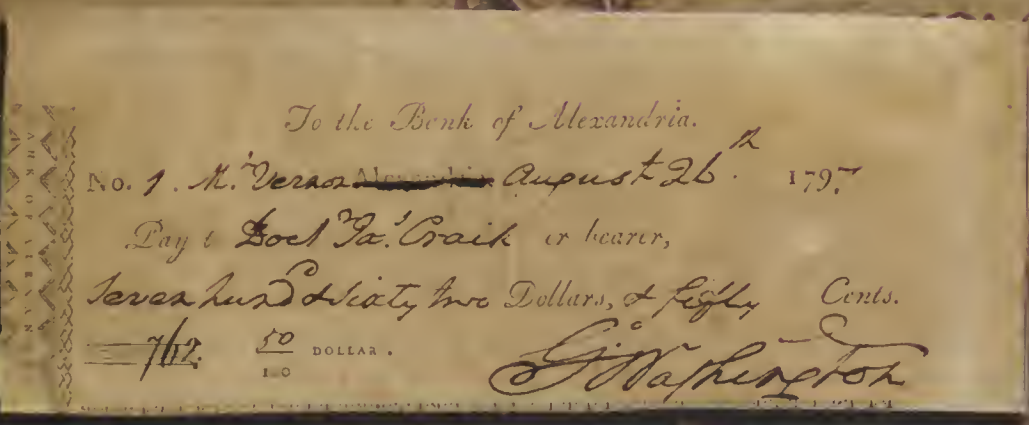 To the Bank of Alexandria.
No. 1. Mt. Vernon Alexandria August 26th 1797
Pay t Doctr Jas. Craik or bearer,
Seven hund & sixty two Dollars, & fifty Cents.
762. 50/100 DOLLAR.
Go Washington